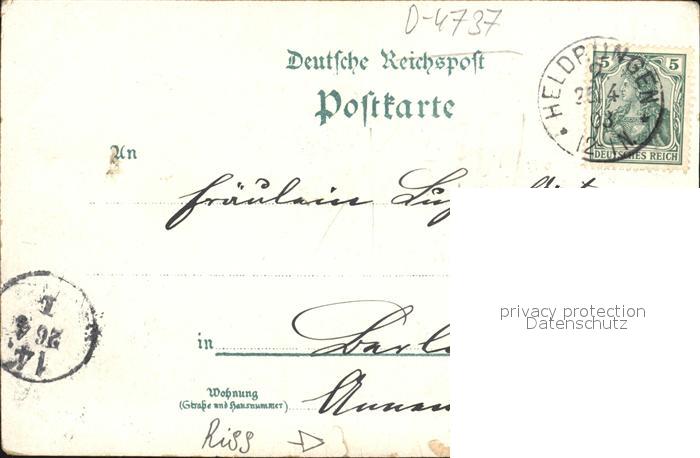 D-4737
Deutsche Reichspost
Postkarte
HELDRUNGEN
4
03
12-1N
5 5
DEUTSCHES REICH
An
Fräulein
privacy protection
Datenschutz
14
26 4
in
Wohnung
(Straße und Hausnummer)
Riss